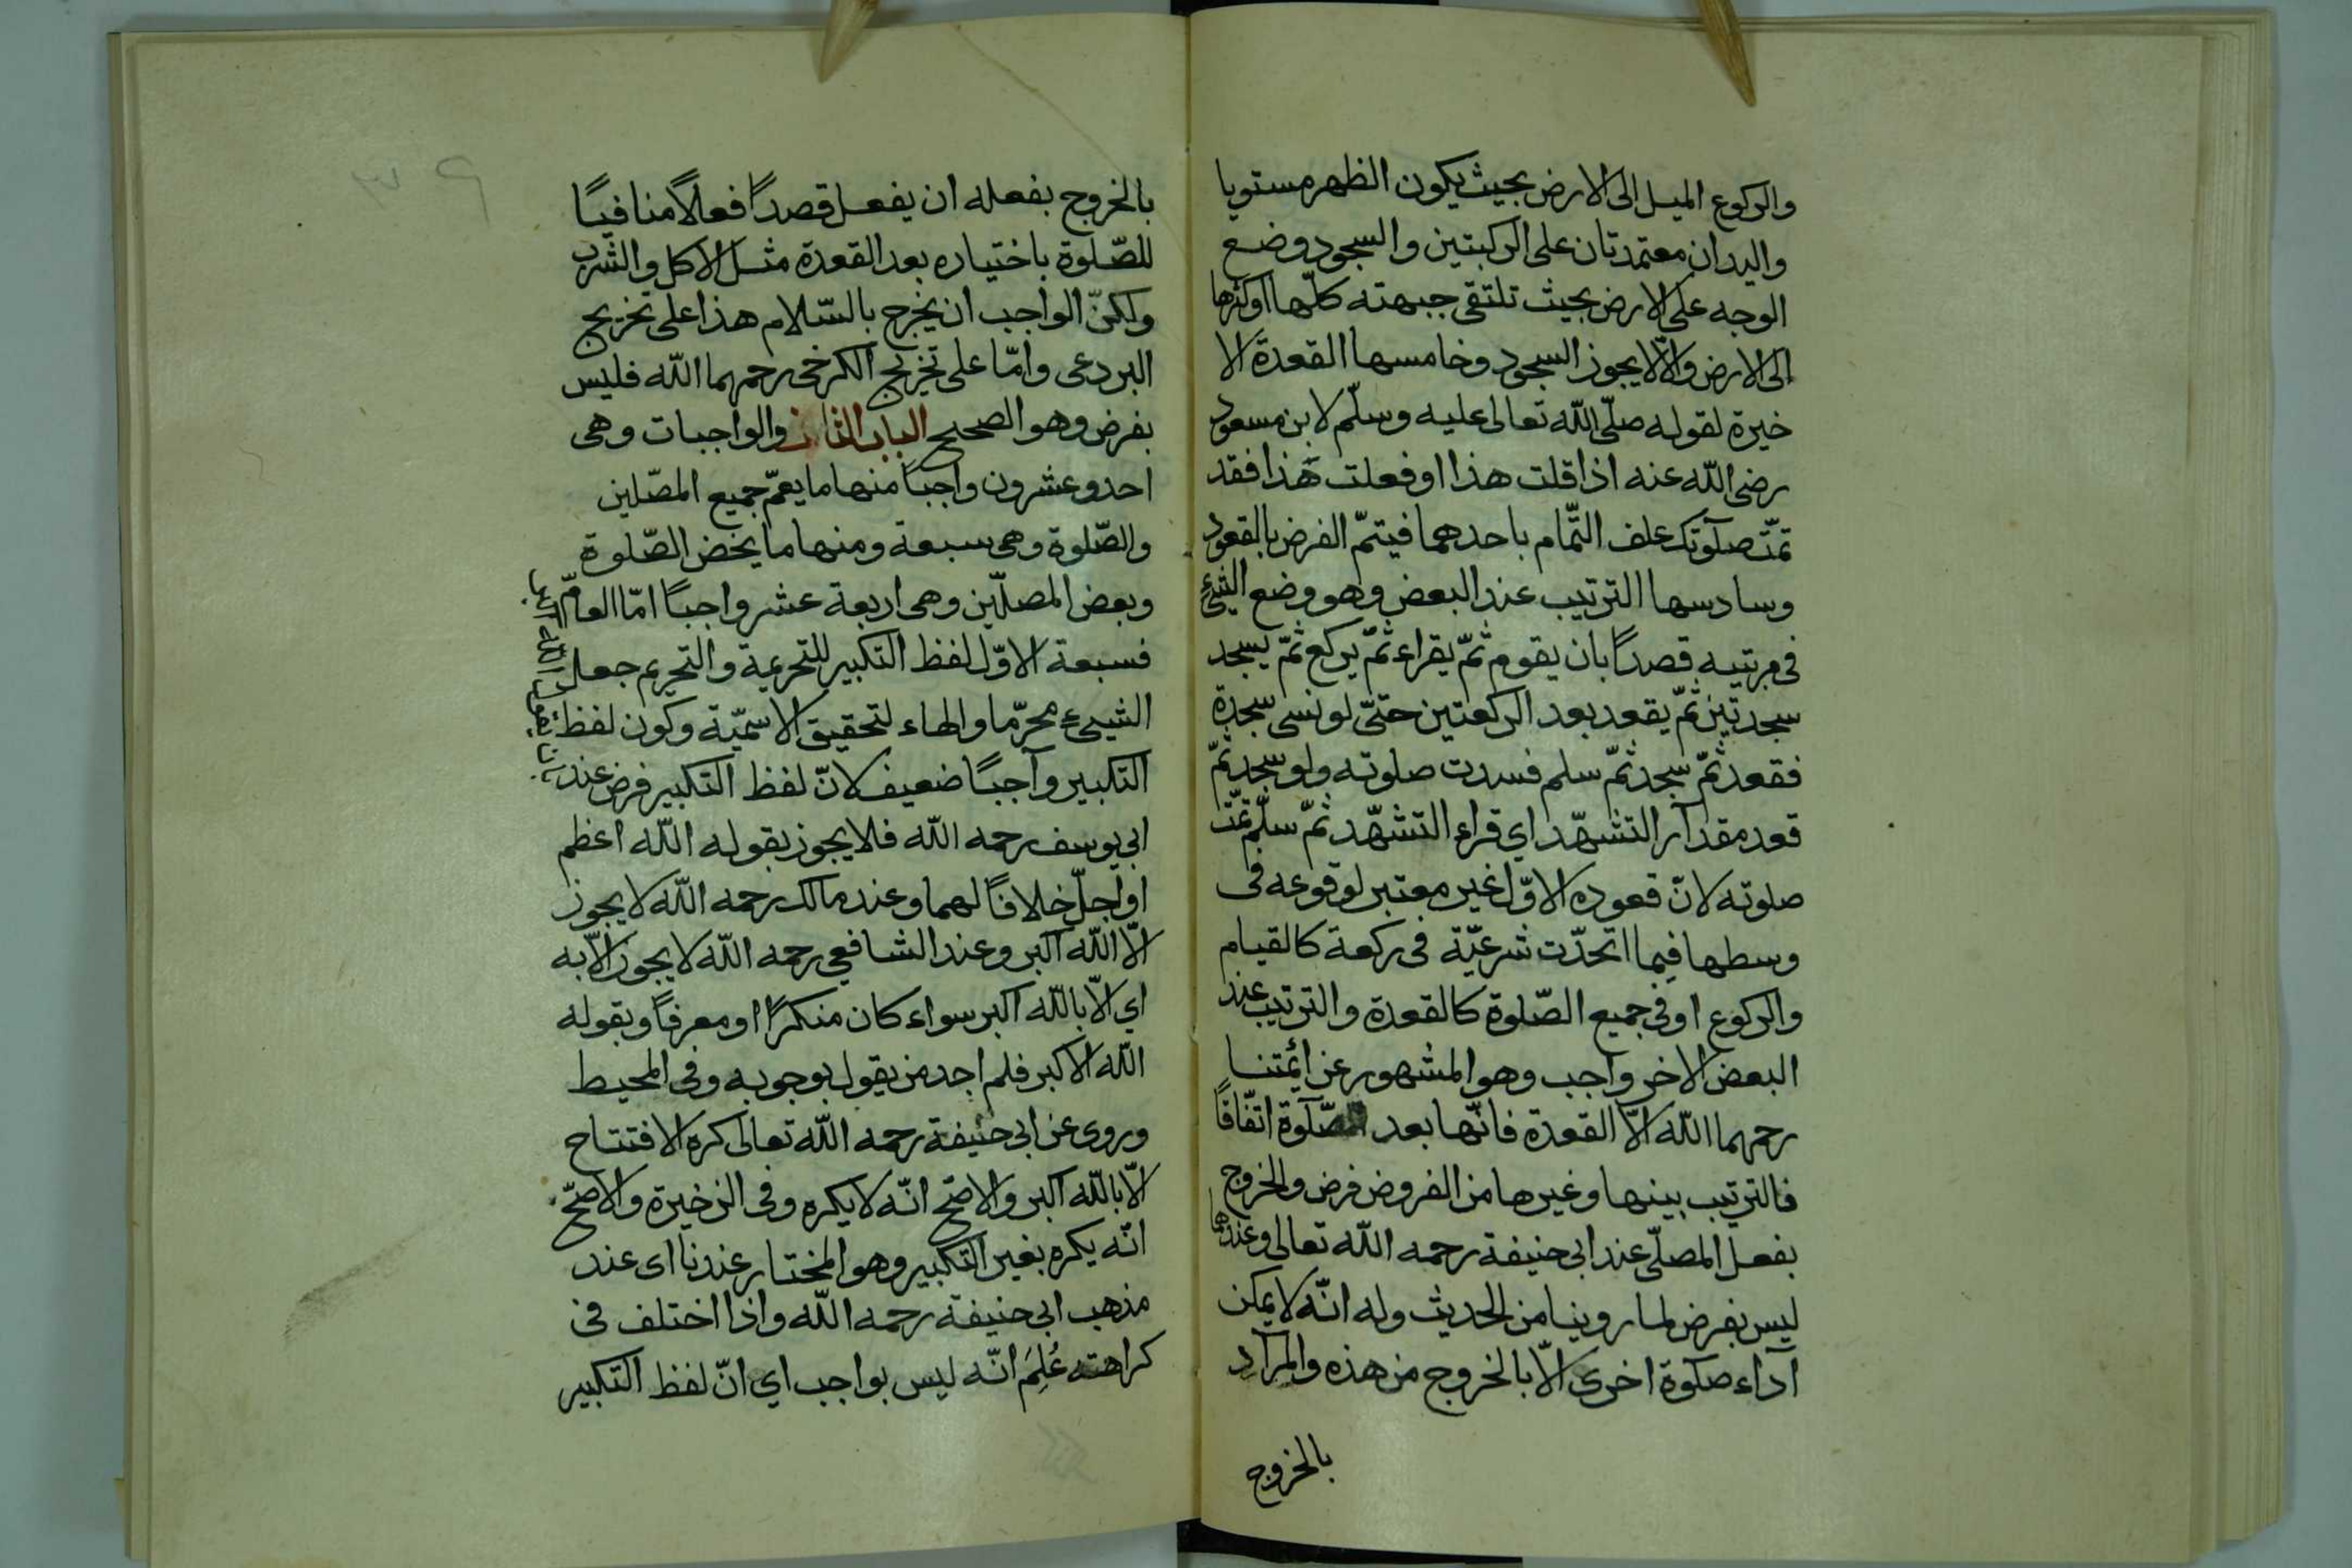 والركوع الميل الى الارض بحيث يكون الظهر مستويا
واليدان معتمدتان على الركبتين والسجود وضع
الوجه على الارض بحيث تلتقى جبهته كلّها او كثرها
الى الارض والّا لا يجوز السجود وخامسها القعدة الا
خيرة لقوله صلّى اللّه تعالى عليه وسلّم لابن مسعود
رضى اللّه عنه اذا قلت هذا او فعلت هذا فقد
تمّت صلوتك علف التّمام باحدهما فيتمّ الفرض بالقعود
وسادسها الترتيب عند البعض وهو وضع الشئ
فى مرتبيه قصداً بان يقوم ثمّ يقراء ثمّ يركع ثمّ يسجد
سجدتين ثمّ يقعد بعد الركعتين حتّى لو نسى سجدة
فقعد ثمّ سجد ثمّ سلم فسدت صلوته ولو سجد ثمّ
قعد مقدار التشهّد اي قراء التشهّد ثمّ سلّم تمّت
صلوته لانّ قعوده الاوّل غير معتبر لوقوعه فى
وسطها فيما اتحدّت شرعيّة فى ركعة كالقيام
والركوع او فى جميع الصّلوة كالقعدة والترتيب عند
البعض الاخر واجب وهو المشهور عن ائمتنا
رحمهما اللّه الّا القعدة فانّها بعد الصّلوة اتّفاقاً
فالترتيب بينها وغيرها من الفروض فرض والخروج
بفعل المصلّى عند ابى حنيفة رحمه اللّه تعالى وعندهما
ليس بفرض لما روينا من الحديث وله انّه لا يمكن
آداء صلوة اخرى الّا بالخروج من هذه والمراد
بالخروج
بالخروج بفعله ان يفعل قصداً فعلاً منافيًا
للصّلوة باختياره بعد القعدة مثل الاكل والشرب
ولكنّ الواجب ان يخرج بالسّلام هذا على تخريج
البردعى وامّا على تخريج الكرخى رحمهما اللّه فليس
بفرض وهو الصحيح الباب الثانى والواجبات وهى
احد وعشرون واجباً منها ما يعمّ جميع المصّلين
والصّلوة وهى سبعة ومنها ما يخص الصّلوة
وبعض المصلّين وهى اربعة عشر واجباً امّا العامّ
فسبعة الاوّل لفظ التكبير للتحريمة والتحريم جعل
الشيىء محرّما والهاء لتحقيق الاسميّة وكون لفظ
التكبير وآجبًا ضعيف لانّ لفظ التكبير فرض عند
ابى يوسف رحمه اللّه فلا يجوز بقوله اللّه اعظم
او اجلّ خلافًا لهما وعند مالك رحمه اللّه لا يجوز
الّا اللّه اكبر وعند الشافعي رحمه اللّه لا يجوز الّا به
اي الّا باللّه اكبر سواء كان منكرًا او معرفاً وبقوله
اللّه الاكبر فلم اجد من يقول بوجوبه وفى المحيط
وروى عن ابى حنيفة رحمه اللّه تعالى كره الافتتاح
الّا باللّه اكبر والاصّح انّه لا يكره وفى الذخيرة والاصّح
انّه يكره بغير التكبير وهو المختار عندنا اى عند
مذهب ابى حنيفة رحمه اللّه واذا اختلف فى
كراهته عُلِمَ انّه ليس بواجب اي انّ لفظ التكبير